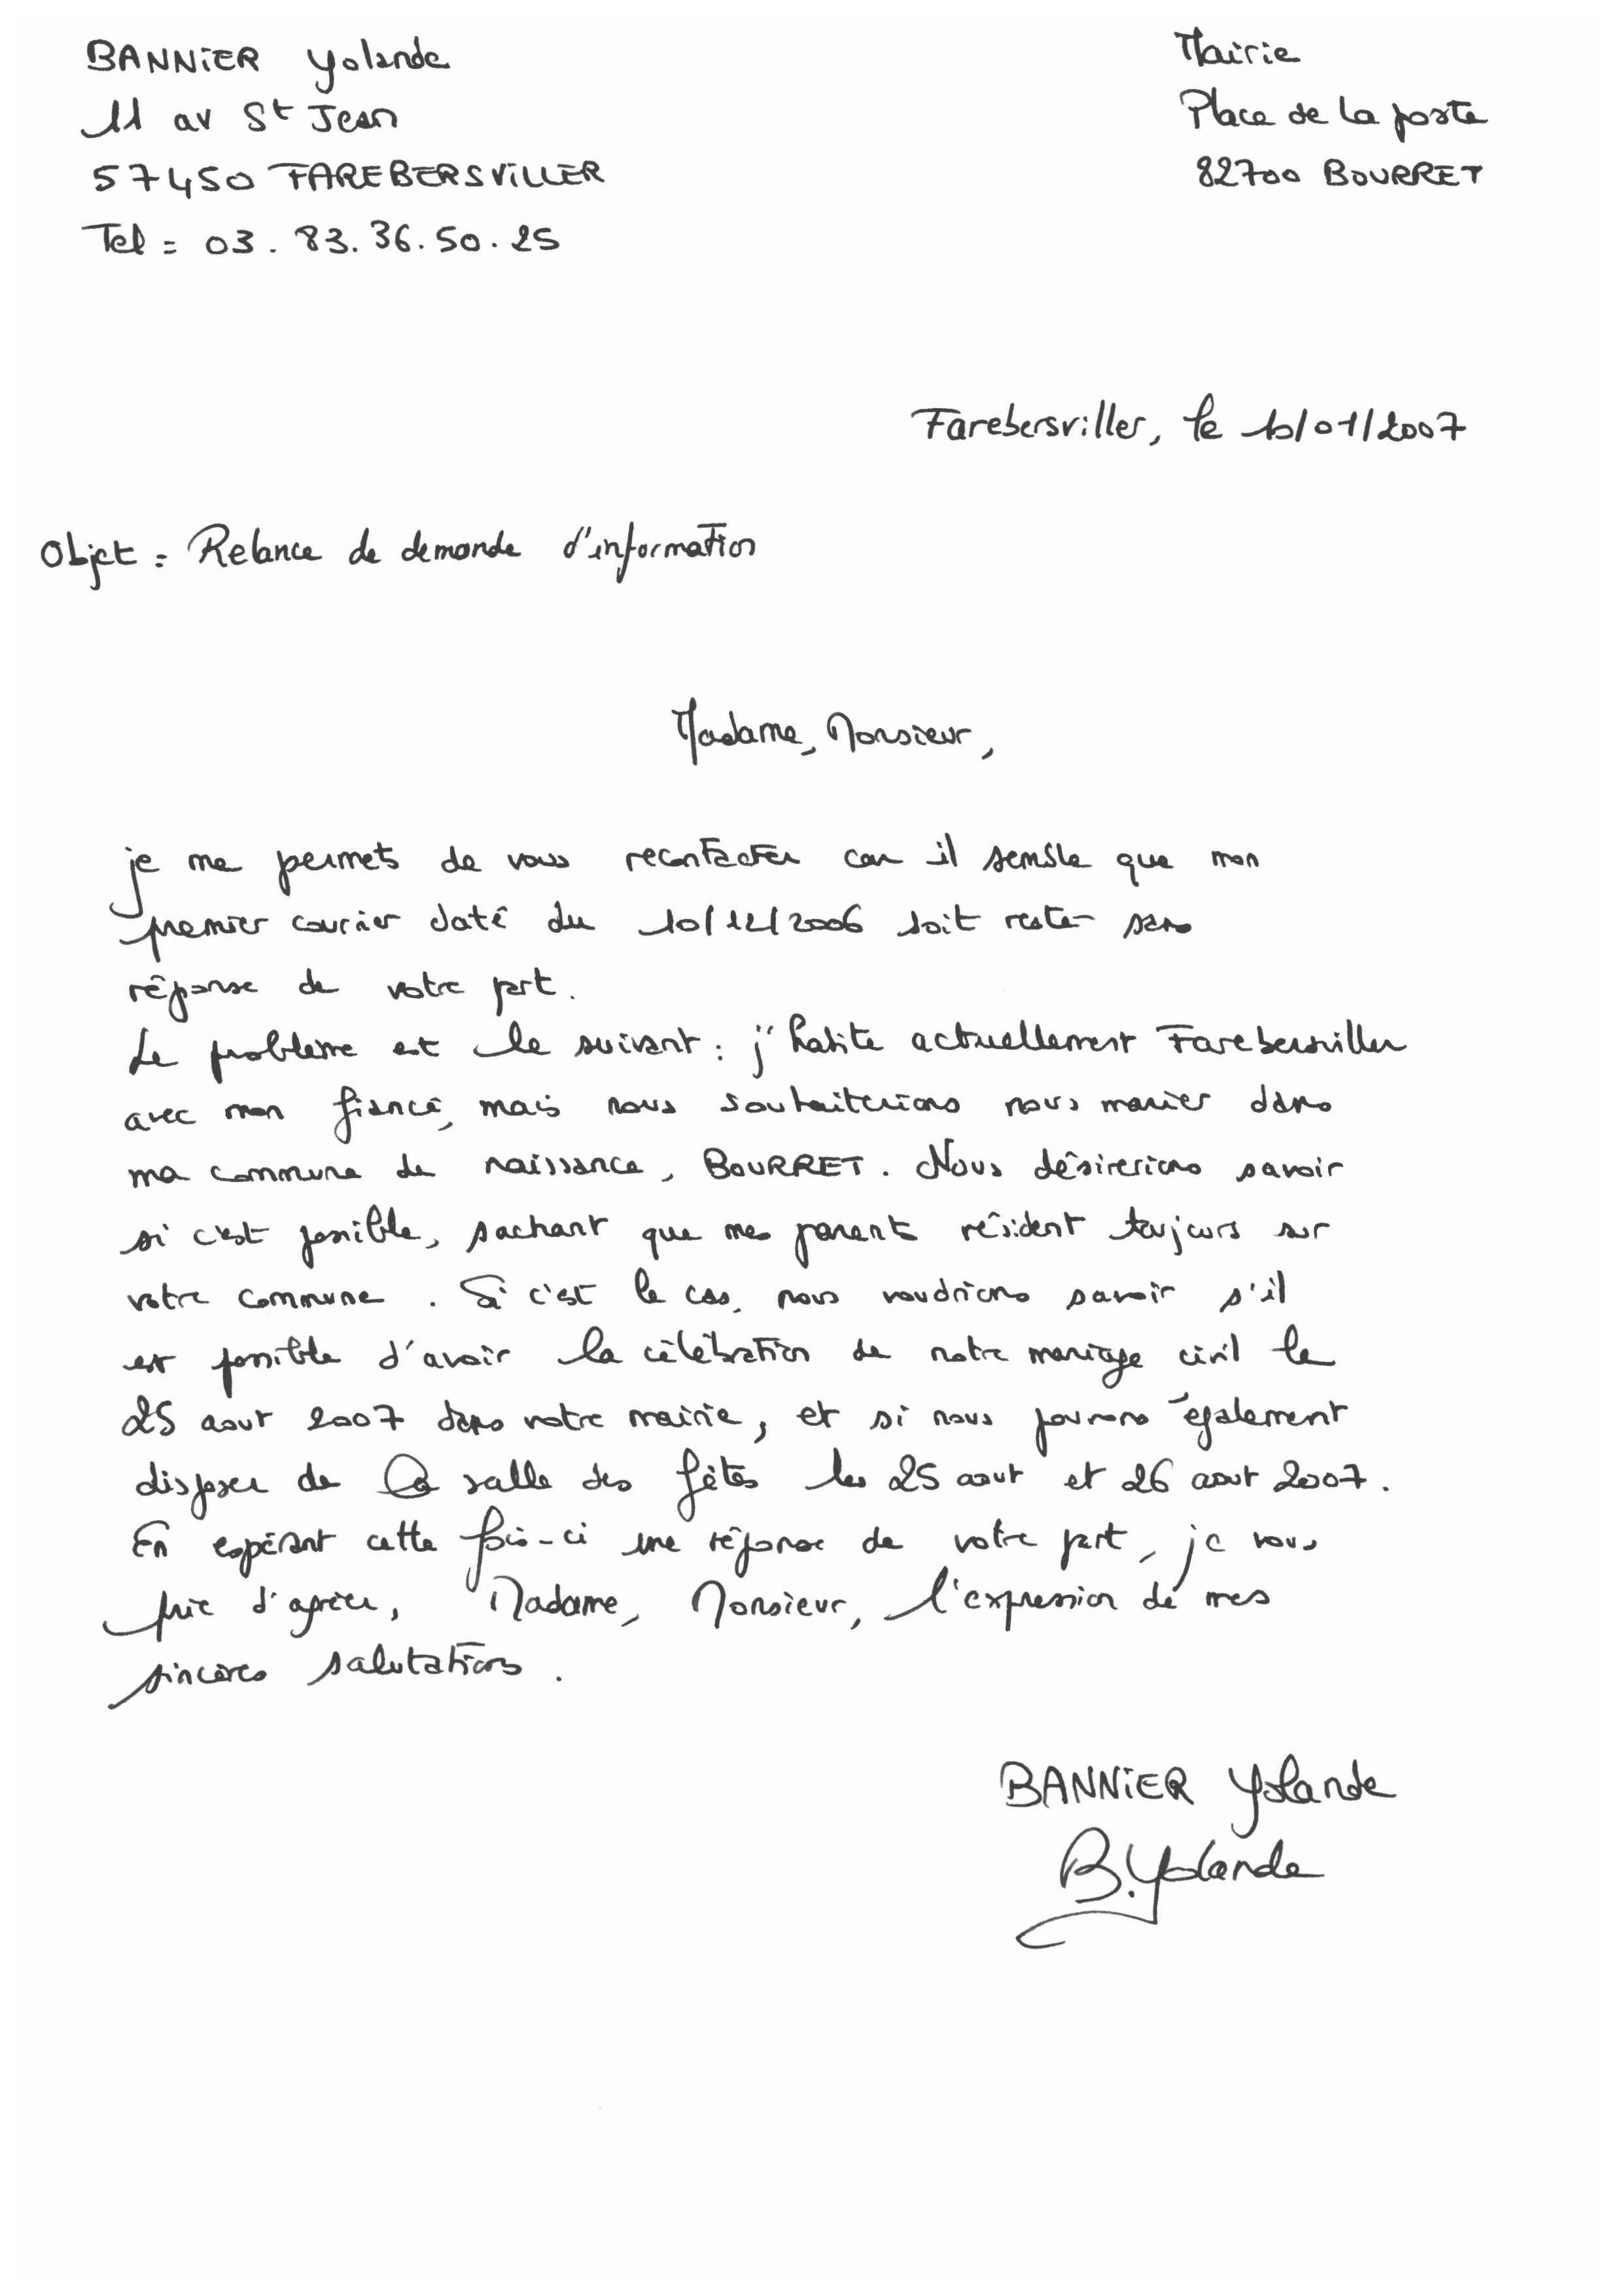 BANNiER Yolande
11 av St Jean
57450 FAREBERSViLLER
Tel = 03. 83. 36. 50. 25
Mairie
Place de la poste
82700 BOURRET
Farebersviller, le 10/01/2007
Objet = Relance de demande d'information
Madame, Monsieur,
je me permets de vous recontacter car il semble que mon
premier courrier daté du 10/12/2006 soit reste sans
réponse de votre part.
Le problème est le suivant : j'habite actuellement Farebersviller
avec mon fiancé, mais nous souhaiterions nous marier dans
ma commune de naissance, BOURRET. Nous désirerions savoir
si c'est possible, sachant que mes parents résident toujours sur
votre commune. Si c'est le cas, nous voudrions savoir s'il
est possible d'avoir la célébration de notre mariage civil le
25 aout 2007 dans votre mairie, et si nous pouvons également
disposer de la salle des fêtes les 25 aout et 26 aout 2007.
En espérant cette fois-ci une réponse de votre part, je vous
prie d'agréer, Madame, Monsieur, l'expression de mes
sincères salutations.
BANNiER Yolande
B.Yolande